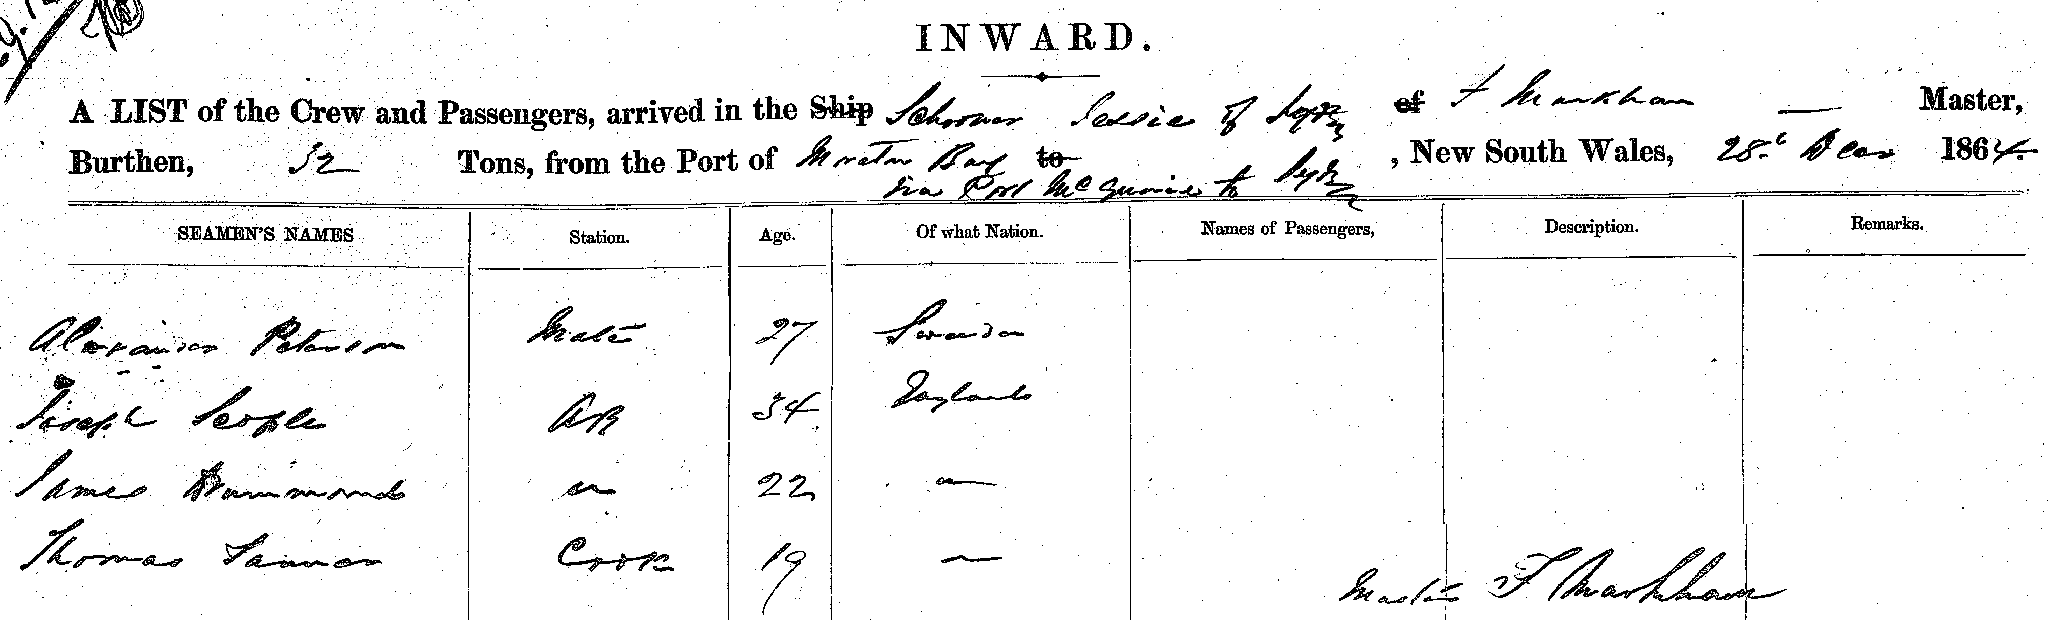 INWARD.
A LIST of the Crew and Passengers, arrived in the Ship Schooner Jessie of Sydy of F Markham — Master,
Burthen, 52 Tons, from the Port of Moreton Bay to Sydy, New South Wales, 28th Decr 1864.
via Port McQuarie to
SEAMEN'S NAMES Station. Age. Of what Nation. Names of Passengers, Description. Remarks.
Alexander Peterson Mate 27 Sweeden
Joseph AB 34 England
James Drummond " 22 —
Thomas Cook 19 —
Master F Markham